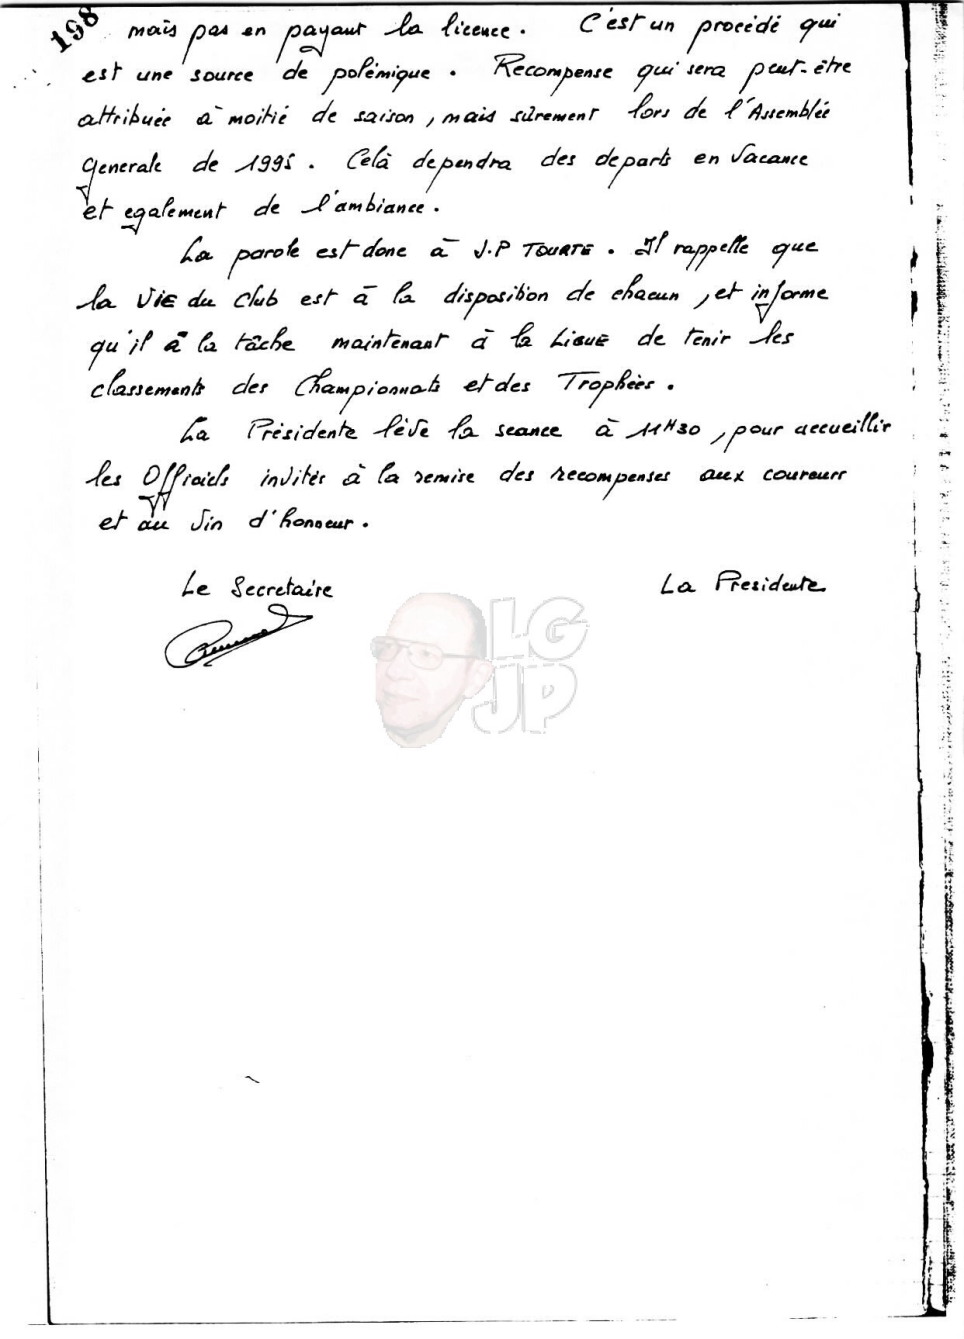 198
mais pas en payant la licence. C'est un procédé qui
est une source de polémique. Recompense qui sera peut-être
attribuée à moitié de saison, mais sûrement lors de l'Assemblée
Generale de 1995. Celà dependra des departs en vacance
et egalement de l'ambiance.
La parole est donc à J.P TOURTE. Il rappelle que
la Vie du club est à la disposition de chacun, et informe
qu'il à la tâche maintenant à la Ligue de tenir les
classements des Championnats et des Trophées.
La Présidente lève la seance à 11H30, pour accueillir
les Officiels invités à la remise des recompenses aux coureurs
et au vin d'honneur.
Le Secretaire La Presidente
LG
JP